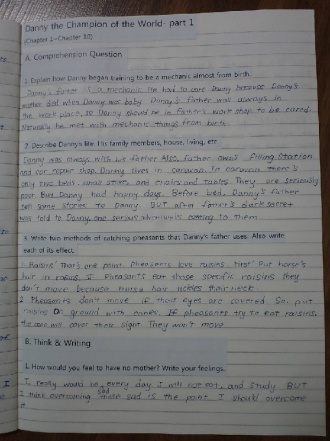 Danny the Champion of the World- part 1
(Chapter 1~Chapter 10)
A. Comprehension Question
1. Explain how Danny began training to be a mechanic almost from birth.
Danny's father is a mechanic. He had to care Danny because Danny's
mother died when Danny was baby. Danny's father was always in
the work place, so Danny should be in father's work shop to be cared.
Naturally he met with mechanic things from birth.
2. Describe Danny's life. His family members, house, living, etc.
Danny was always with his father. Also, father owns Filling Station
and car repair shop. Danny lives in caravan. In caravan, there's
only two beds, small stairs, and chairs and tables. They are seriously
poor. But Danny had happy days. Before bed, Danny's father
tell some stories to Danny. BUT after father's dark secret
was told to Danny, one serious adventure is coming to them
3. Write two methods of catching pheasants that Danny's father uses. Also write
each of its effect.
1. Raisins! That's one point. Pheasants love raisins. First! Put horse's
hair in raisins. If Pheasants eat those specific raisins they
don't move because horse hair tickles their neck
2. Pheasants don't move if their eyes are covered. So, put
raisins on ground with cones. If pheasants try to eat raisins,
the cone will cover their sight. They won't move
B. Think & Writing
1. How would you feel to have no mother? Write your feelings.
I really would be sad every day. I will not eat, and study. BUT
I think overcoming those sad is the point. I should overcome
it